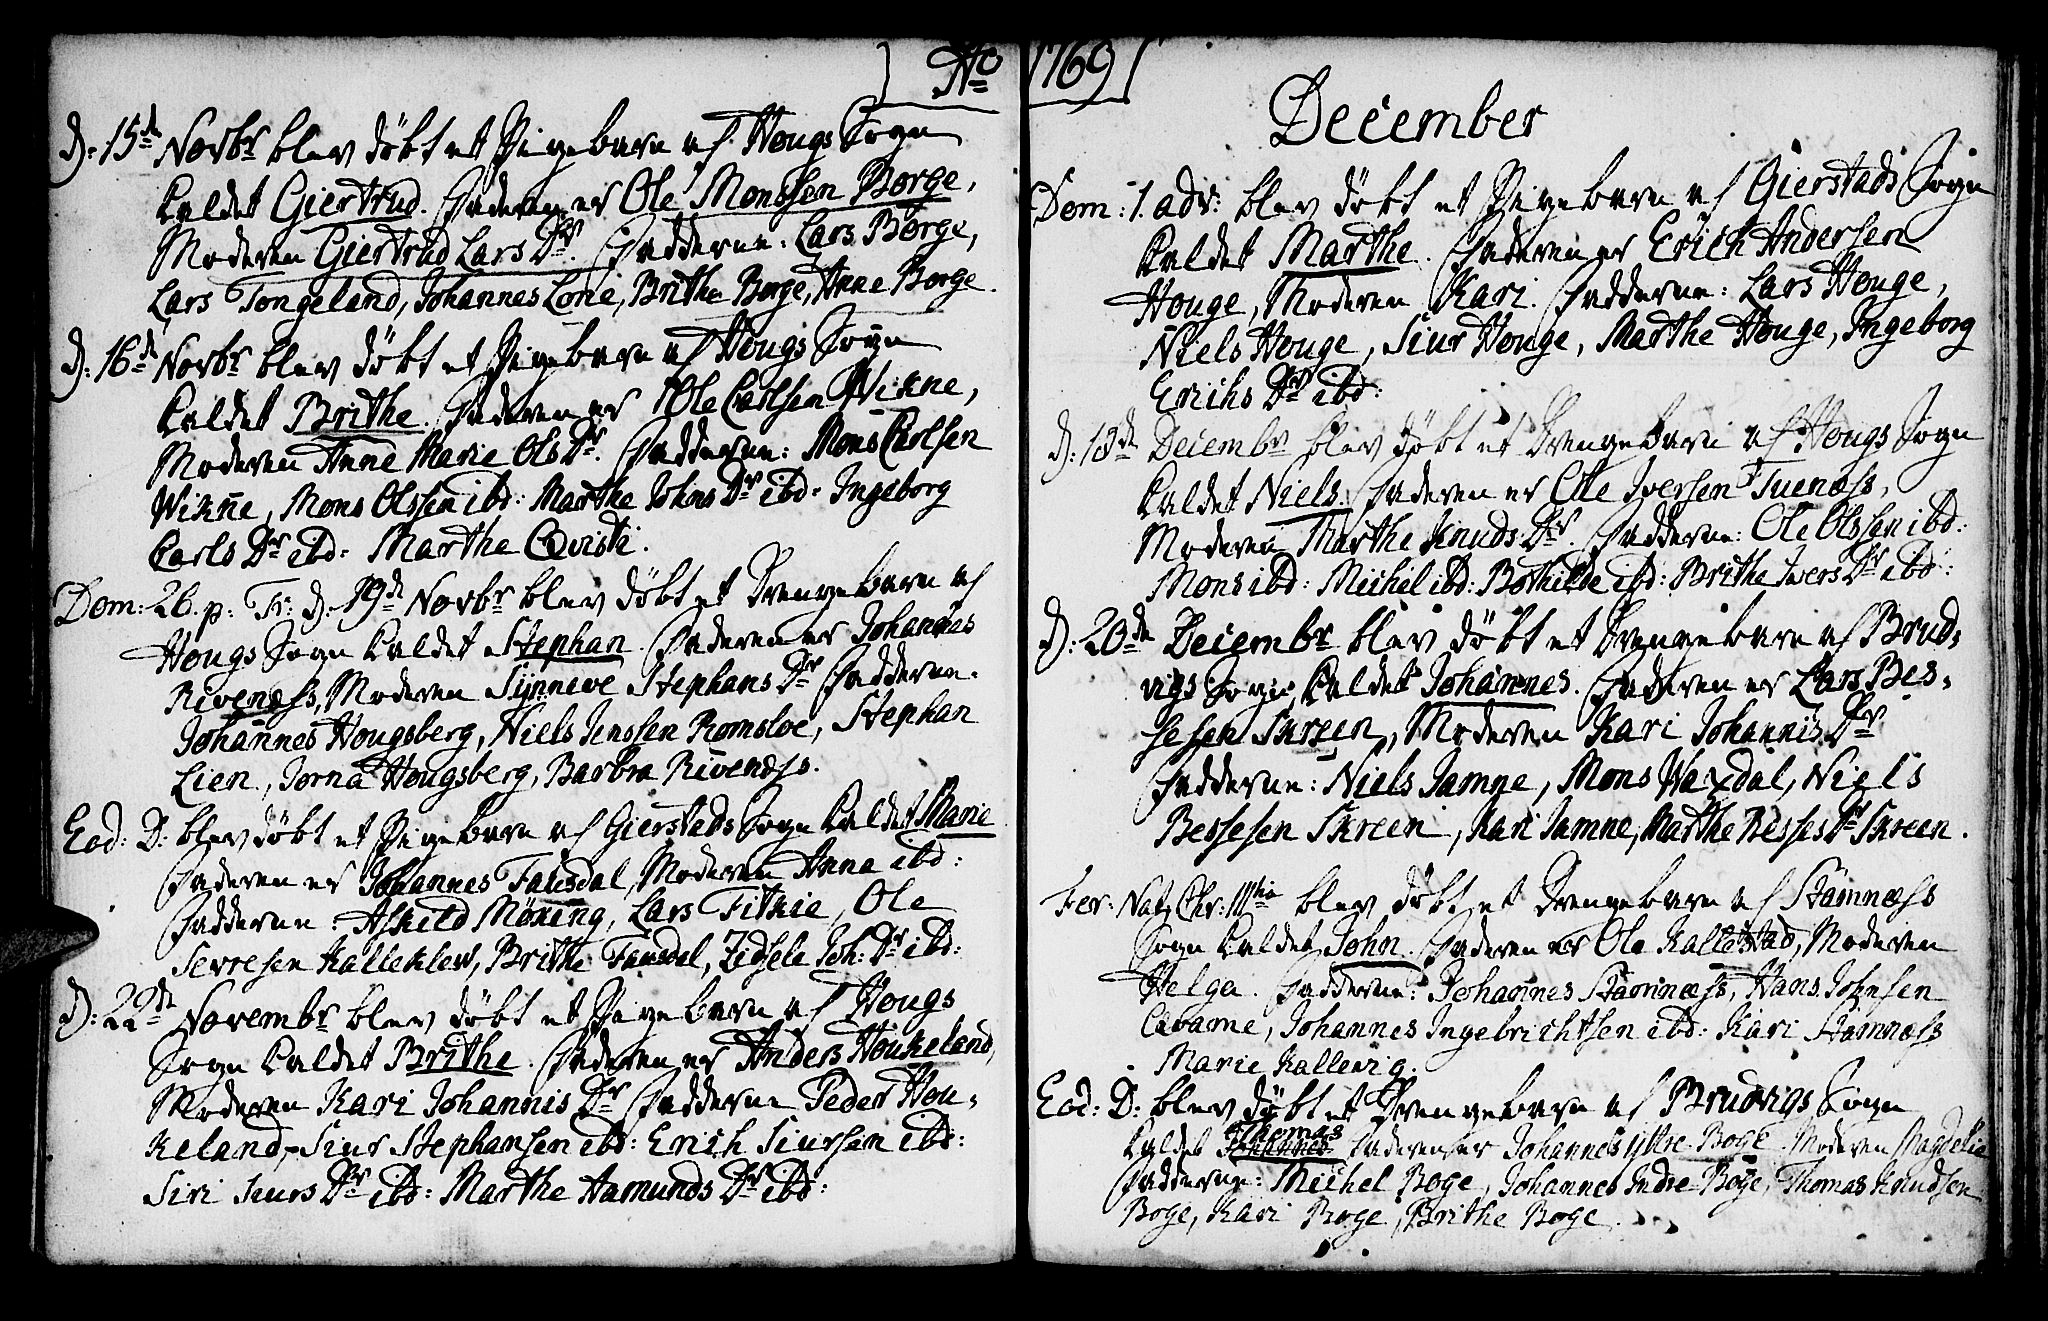 Ao 1769
D: 15de Novbr blev døbt et Pigebarn af Hougs Sogn
kaldet Giertrud. Faderen er Ole Monssen Borge,
Moderen Giertrud Lars Dr. Fadderne: Lars Borge,
Lars Tongeland, Johannes Lone, Brithe Borge, Anne Borge.
D: 16de Novbr blev døbt et Pigebarn af Hougs Sogn
kaldet Brithe. Faderen er Ole Carlsen Wikne,
Moderen Anne Marie Ols Dr. Fadderne: Mons Carlsen
Wikne, Mons Olssen ibd: Marthe Johns Dr ibd: Ingeborg
Carls Dr ibd: Marthe Qvisti.
Dom: 26. p: Tr: d. 19de Novbr blev døbt et Drengebarn af
Hougs Sogn kaldet Stephan. Faderen er Johannes
Rivenæss, Moderen Synneve Stephans Dr Fadderne.
Johannes Hougsberg, Niels Jenssen Romsloe, Stephan
Lien, Jorna Hougsberg, Barbra Rivenæss.
Eod: D: blev døbt et Pigebarn af Gierstads Sogn kaldet Marie
Faderen er Johannes Fausdal, Moderen Anna ibd:
Fadderne: Askild Møxing, Lars Titkie, Ole
Serresen Kalleklev, Brithe Fausdal, Zidsele Joh: Dr ibd:
D: 22de Novembr blev døbt et Pigebarn af Hougs
Sogn kaldet Brithe. Faderen er Anders Houkeland,
Moderen Kari Johannis Dr Fadderne Peder Hou-
keland, Siur Stephansen ibd: Erich Siursen ibd:
Siri Siurs Dr ibd: Marthe Aamunds Dr ibd:
December
Dom: 1. adv: blev døbt et Pigebarn af Gierstads Sogn
kaldet Marthe. Faderen er Erich Andersen
Houge, Moderen Kari. Fadderne: Lars Houge,
Niels Houge, Siur Houge, Marthe Houge, Ingeborg
Erichs Dr ibd:
D: 13de Decembr blev døbt et Drengebarn af Hougs Sogn
kaldet Niels. Faderen er Ole Iversen Tuenæss,
Moderen Marthe Knuds Dr. Fadderne: Ole Olssen ibd:
Mons ibd: Michel ibd: Bothilde ibd: Brithe Ivers Dr ibd:
D: 20de Decembr blev døbt et Drengebarn af Brud-
vigs Sogn, kaldet Johannes. Faderen er Lars Bes-
sesen Skreen, Moderen Kari Johannis Dr
Fadderne: Niels Jamne, Mons Waxdal, Niels
Bessesen Skreen, Kari Jamne, Marthe Besses Dr Skreen.
Fer: Nat: Chr: IIItia blev døbt et Drengebarn af Stamnæss
Sogn kaldet John. Faderen er Ole Kallestad, Moderen
Helga. Fadderne: Johannes Stamnæss, Hans Johnsen
Johannes Ingebrichtsen ibd: Kari Stamnæss
Marie Kallevig.
Eod: D: blev døbt et Drengebarn af Brudvigs Sogn
kaldet Thomas Johannes Faderen er Johannes ytre Boge. Moderen Magdelie
Fadderne: Michel Boge, Johannes Indre Boge, Thomas Knudsen
Boge, Kari Boge, Brithe Boge.